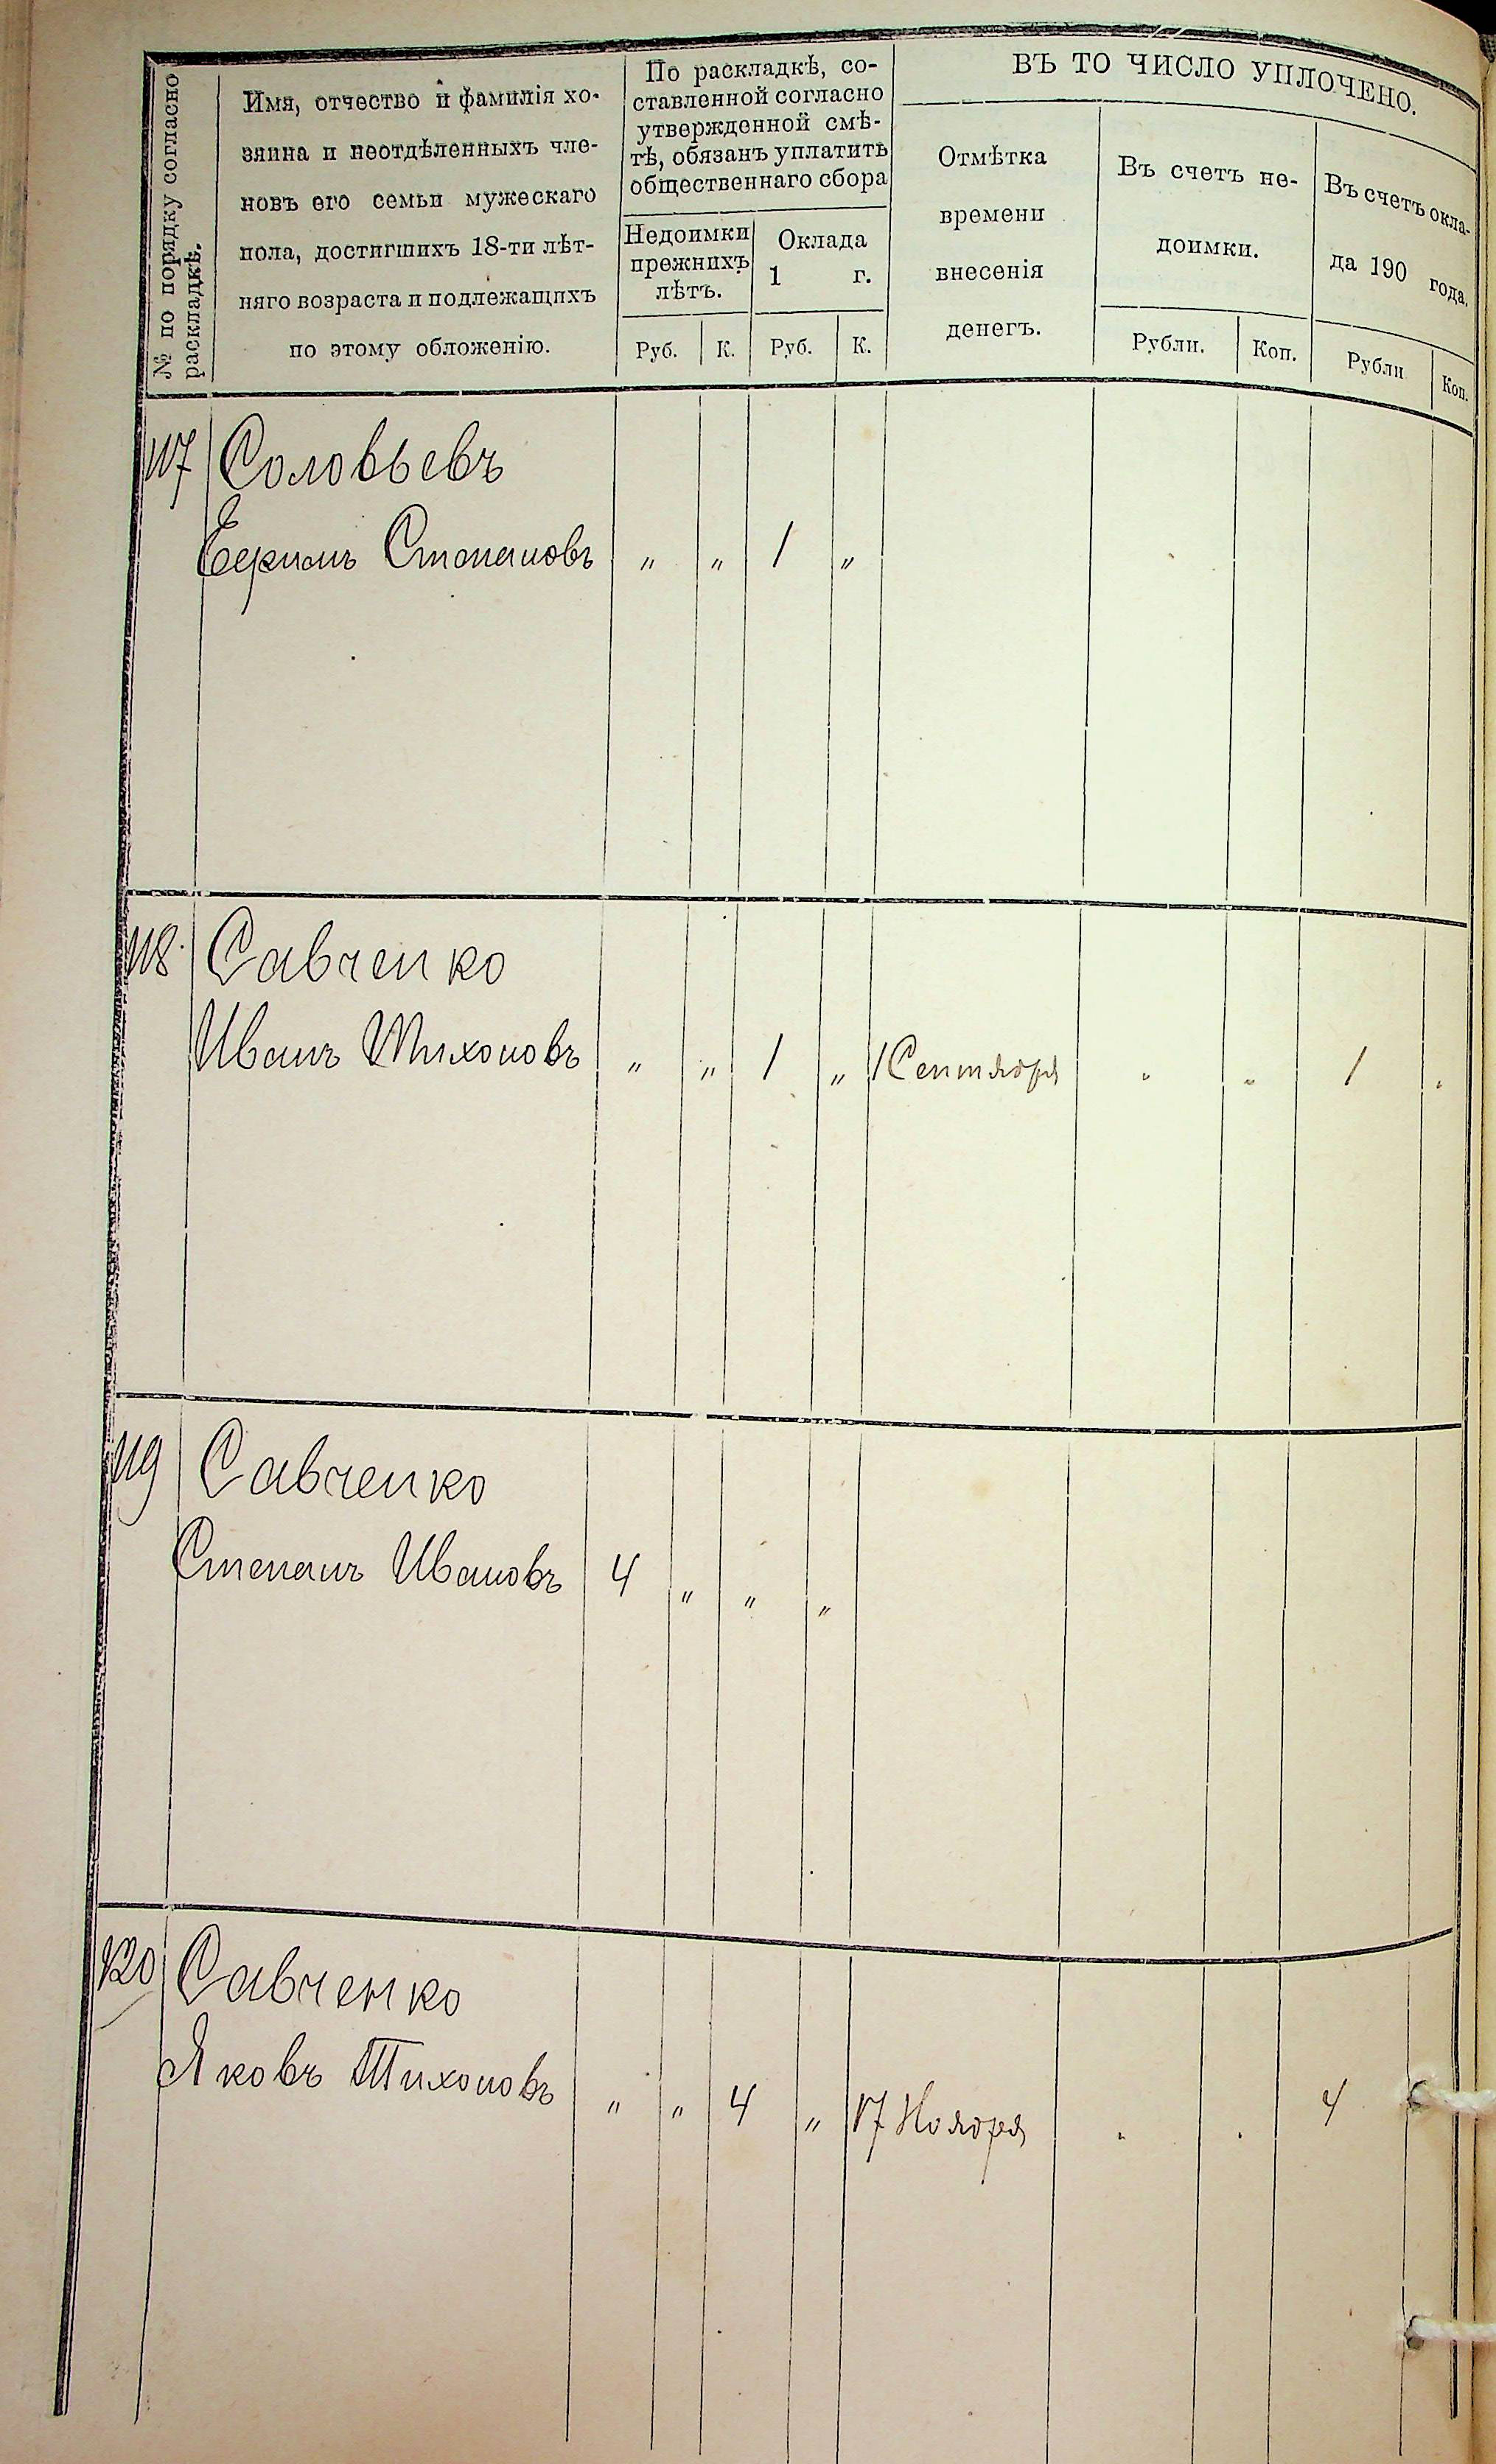 № по порядку согласно
раскладкѣ.
Имя, отчество и фамилія хо-
зяина и неотдѣленныхъ чле-
новъ его семьи мужескаго
пола, достигшихъ 18-ти лѣт-
няго возраста и подлежащихъ
по этому обложенію.
По раскладкѣ, со-
ставленной согласно
утвержденной смѣ-
тѣ, обязанъ уплатить
общественнаго сбора
Недоимки
прежнихъ
лѣтъ.
Руб. К.
Оклада
1 г.
Руб. К.
ВЪ ТО ЧИСЛО УПЛОЧЕНО.
Отмѣтка
времени
внесенія
денегъ.
Въ счетъ не-
доимки.
Рубли. Коп.
Въ счетъ окла-
да 190 года.
Рубли Коп.
117 Соловьевъ
Ефимъ Степановъ " " 1 "
118. Савченко
Иванъ Тихоновъ " " 1 " 1 Сентября " " 1 "
119 Савченко
Степанъ Ивановъ 4 " " "
120 Савченко
Яковъ Тихоновъ " " 4 " 17 Ноября " " 4